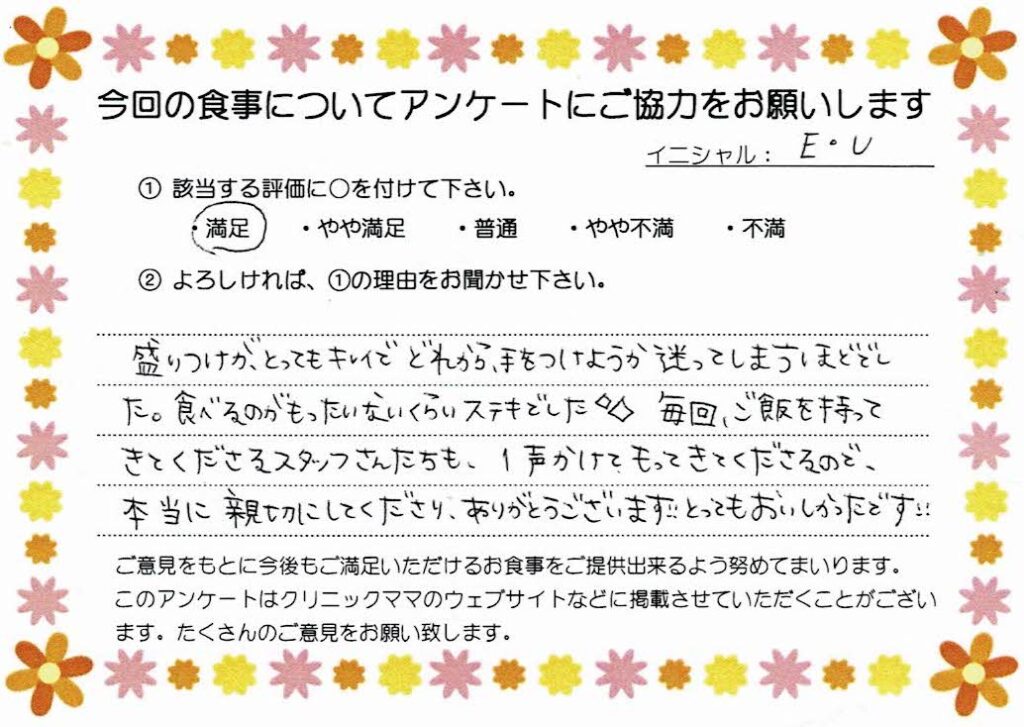 今回の食事についてアンケートにご協力をお願いします
イニシャル： E・U
① 該当する評価に○を付けて下さい。
・満足 ・やや満足 ・普通 ・やや不満 ・不満
② よろしければ、①の理由をお聞かせ下さい。
盛りつけが、とってもキレイで どれから、手をつけようか 迷ってしまうほどでし
た。食べるのがもったいないくらいステキでした◇◇ 毎回、ご飯を持って
きてくださるスタッフさんたちも、1声かけて、もってきてくださるので、
本当に 親切にしてくださり、ありがとうございます!!とってもおいしかったです!!
ご意見をもとに今後もご満足いただけるお食事をご提供出来るよう努めてまいります。
このアンケートはクリニックママのウェブサイトなどに掲載させていただくことがござい
ます。たくさんのご意見をお願い致します。